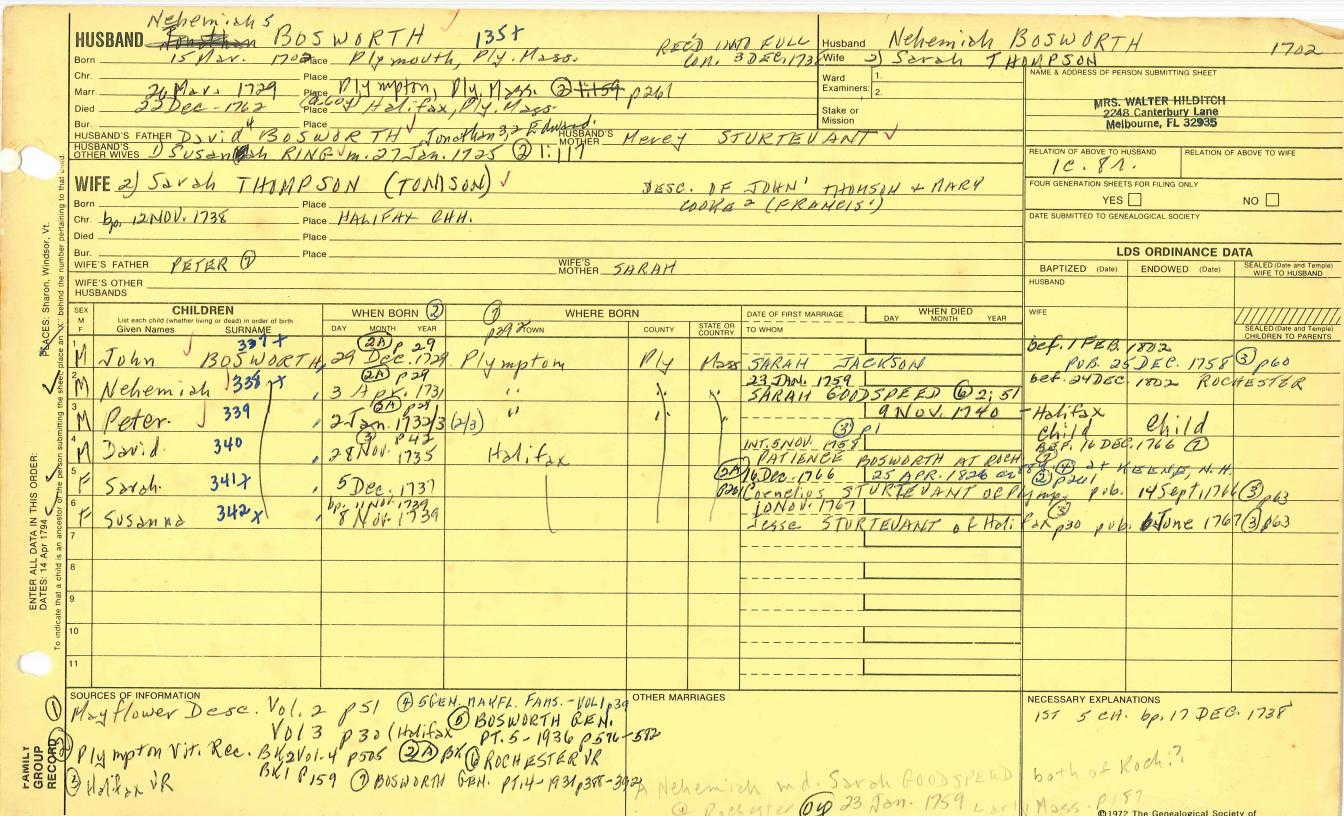 Nehemiah 5
HUSBAND Jonathan BOSWORTH 135+
REC'D INTO FULL
Born 15 Mar. 1702 Place Plymouth, Ply. Mass. CON. 3 DEC. 173
Chr. Place
Marr. 26 Mar. 1729 Place Plympton, Ply. Mass. ② 1:159 p261
Died 22 Dec - 1762 Place (a60y) Halifax, Ply. Mass.
Bur.
HUSBAND'S FATHER David 4 BOSWORTH Jonathan 3,2 Edward1. HUSBAND'S MOTHER Mercy STURTEVANT
HUSBAND'S OTHER WIVES 1) Susannah RING m. 27 Jan. 1725 ② 1:117
WIFE 2) Sarah THOMPSON (TOMSON) DESC. OF JOHN' THOMSON + MARY
COOKE 2 (FRANCIS')
Born Place
Chr. bp. 12 NOV. 1738 Place HALIFAX CHH.
Died Place
Bur. Place
WIFE'S FATHER PETER ⑦ WIFE'S MOTHER SARAH
WIFE'S OTHER HUSBANDS
Husband Nehemiah BOSWORTH 1702
Wife 2) Sarah THOMPSON
Ward Examiners: 1.
2.
Stake or Mission
NAME & ADDRESS OF PERSON SUBMITTING SHEET
MRS. WALTER HILDITCH
2248 Canterbury Lane
Melbourne, FL 32935
RELATION OF ABOVE TO HUSBAND RELATION OF ABOVE TO WIFE
1c. 8r.
FOUR GENERATION SHEETS FOR FILING ONLY
YES NO
DATE SUBMITTED TO GENEALOGICAL SOCIETY
LDS ORDINANCE DATA
BAPTIZED (Date) ENDOWED (Date) SEALED (Date and Temple) WIFE TO HUSBAND
HUSBAND
WIFE
SEALED (Date and Temple) CHILDREN TO PARENTS
SEX M F CHILDREN WHEN BORN ② ⑦ WHERE BORN DATE OF FIRST MARRIAGE WHEN DIED
List each child (whether living or dead) in order of birth
Given Names SURNAME DAY MONTH YEAR TOWN COUNTY STATE OR COUNTRY TO WHOM DAY MONTH YEAR
337+ 2A p 29 bef. 1 FEB. 1802
1 M John BOSWORTH, 29 Dec. 1729 Plympton Ply Mass SARAH JACKSON PUB. 25 DEC. 1758 ③ p60
2A p29 23 JAN. 1759 bef. 24 DEC. 1802 ROCHESTER
2 M Nehemiah 338+ 3 Apr. 1731 " " " SARAH GOODSPEED ⑥ 2:51
2A p29 9 NOV. 1740 - Halifax
3 M Peter. 339 2 Jan. 1732/3 (2/3) " " " ③ p1 Child Child
③ p42 INT. 5 NOV. 1758 16 DEC. 1766 ⑦
4 M David. 340 28 Nov. 1735 Halifax PATIENCE BOSWORTH AT ROCH
2A 16 Dec. 1766 25 APR. 1826 ④ at KEENE, N.H.
5 F Sarah. 341x 5 Dec. 1737 p261 Cornelius STURTEVANT OF Plymp. pub. 14 Sept, 1766 ③ p63
bp. 11 Nov. 1739 10 NOV. 1767 ③
6 F Susanna 342x 8 Nov. 1739 Jesse STURTEVANT of Halifax p30 pub. 6 June 1767 ③ p63
7
8
9
10
11
SOURCES OF INFORMATION
① Mayflower Desc. Vol. 2 p 51 ④ 5 GEN. MAYFL. FAMS. - VOL1 p39
VOl 3 p 30 (Halifax ⑤ BOSWORTH GEN. PT. 5 - 1936 p576-582
② Plympton Vit. Rec. BK2 Vol. 4 p505 2A BK. ⑥ ROCHESTER VR
BK1 P159
③ Halifax VR ⑦ BOSWORTH GEN. PT. 4 - 1931 p388-392
OTHER MARRIAGES
A Nehemiah md. Sarah GOODSPEED both of Roch.?
@ Rochester 23 Jan. 1759 Early Mass. p157
NECESSARY EXPLANATIONS
1ST 5 CH. bp. 17 DEC. 1738
©1972 The Genealogical Society of
FAMILY GROUP RECORD
ENTER ALL DATA IN THIS ORDER:
DATES: 14 Apr 1794
PLACES: Sharon, Windsor, Vt.
To indicate that a child is an ancestor of the person submitting the sheet place an X behind the number pertaining to that child.